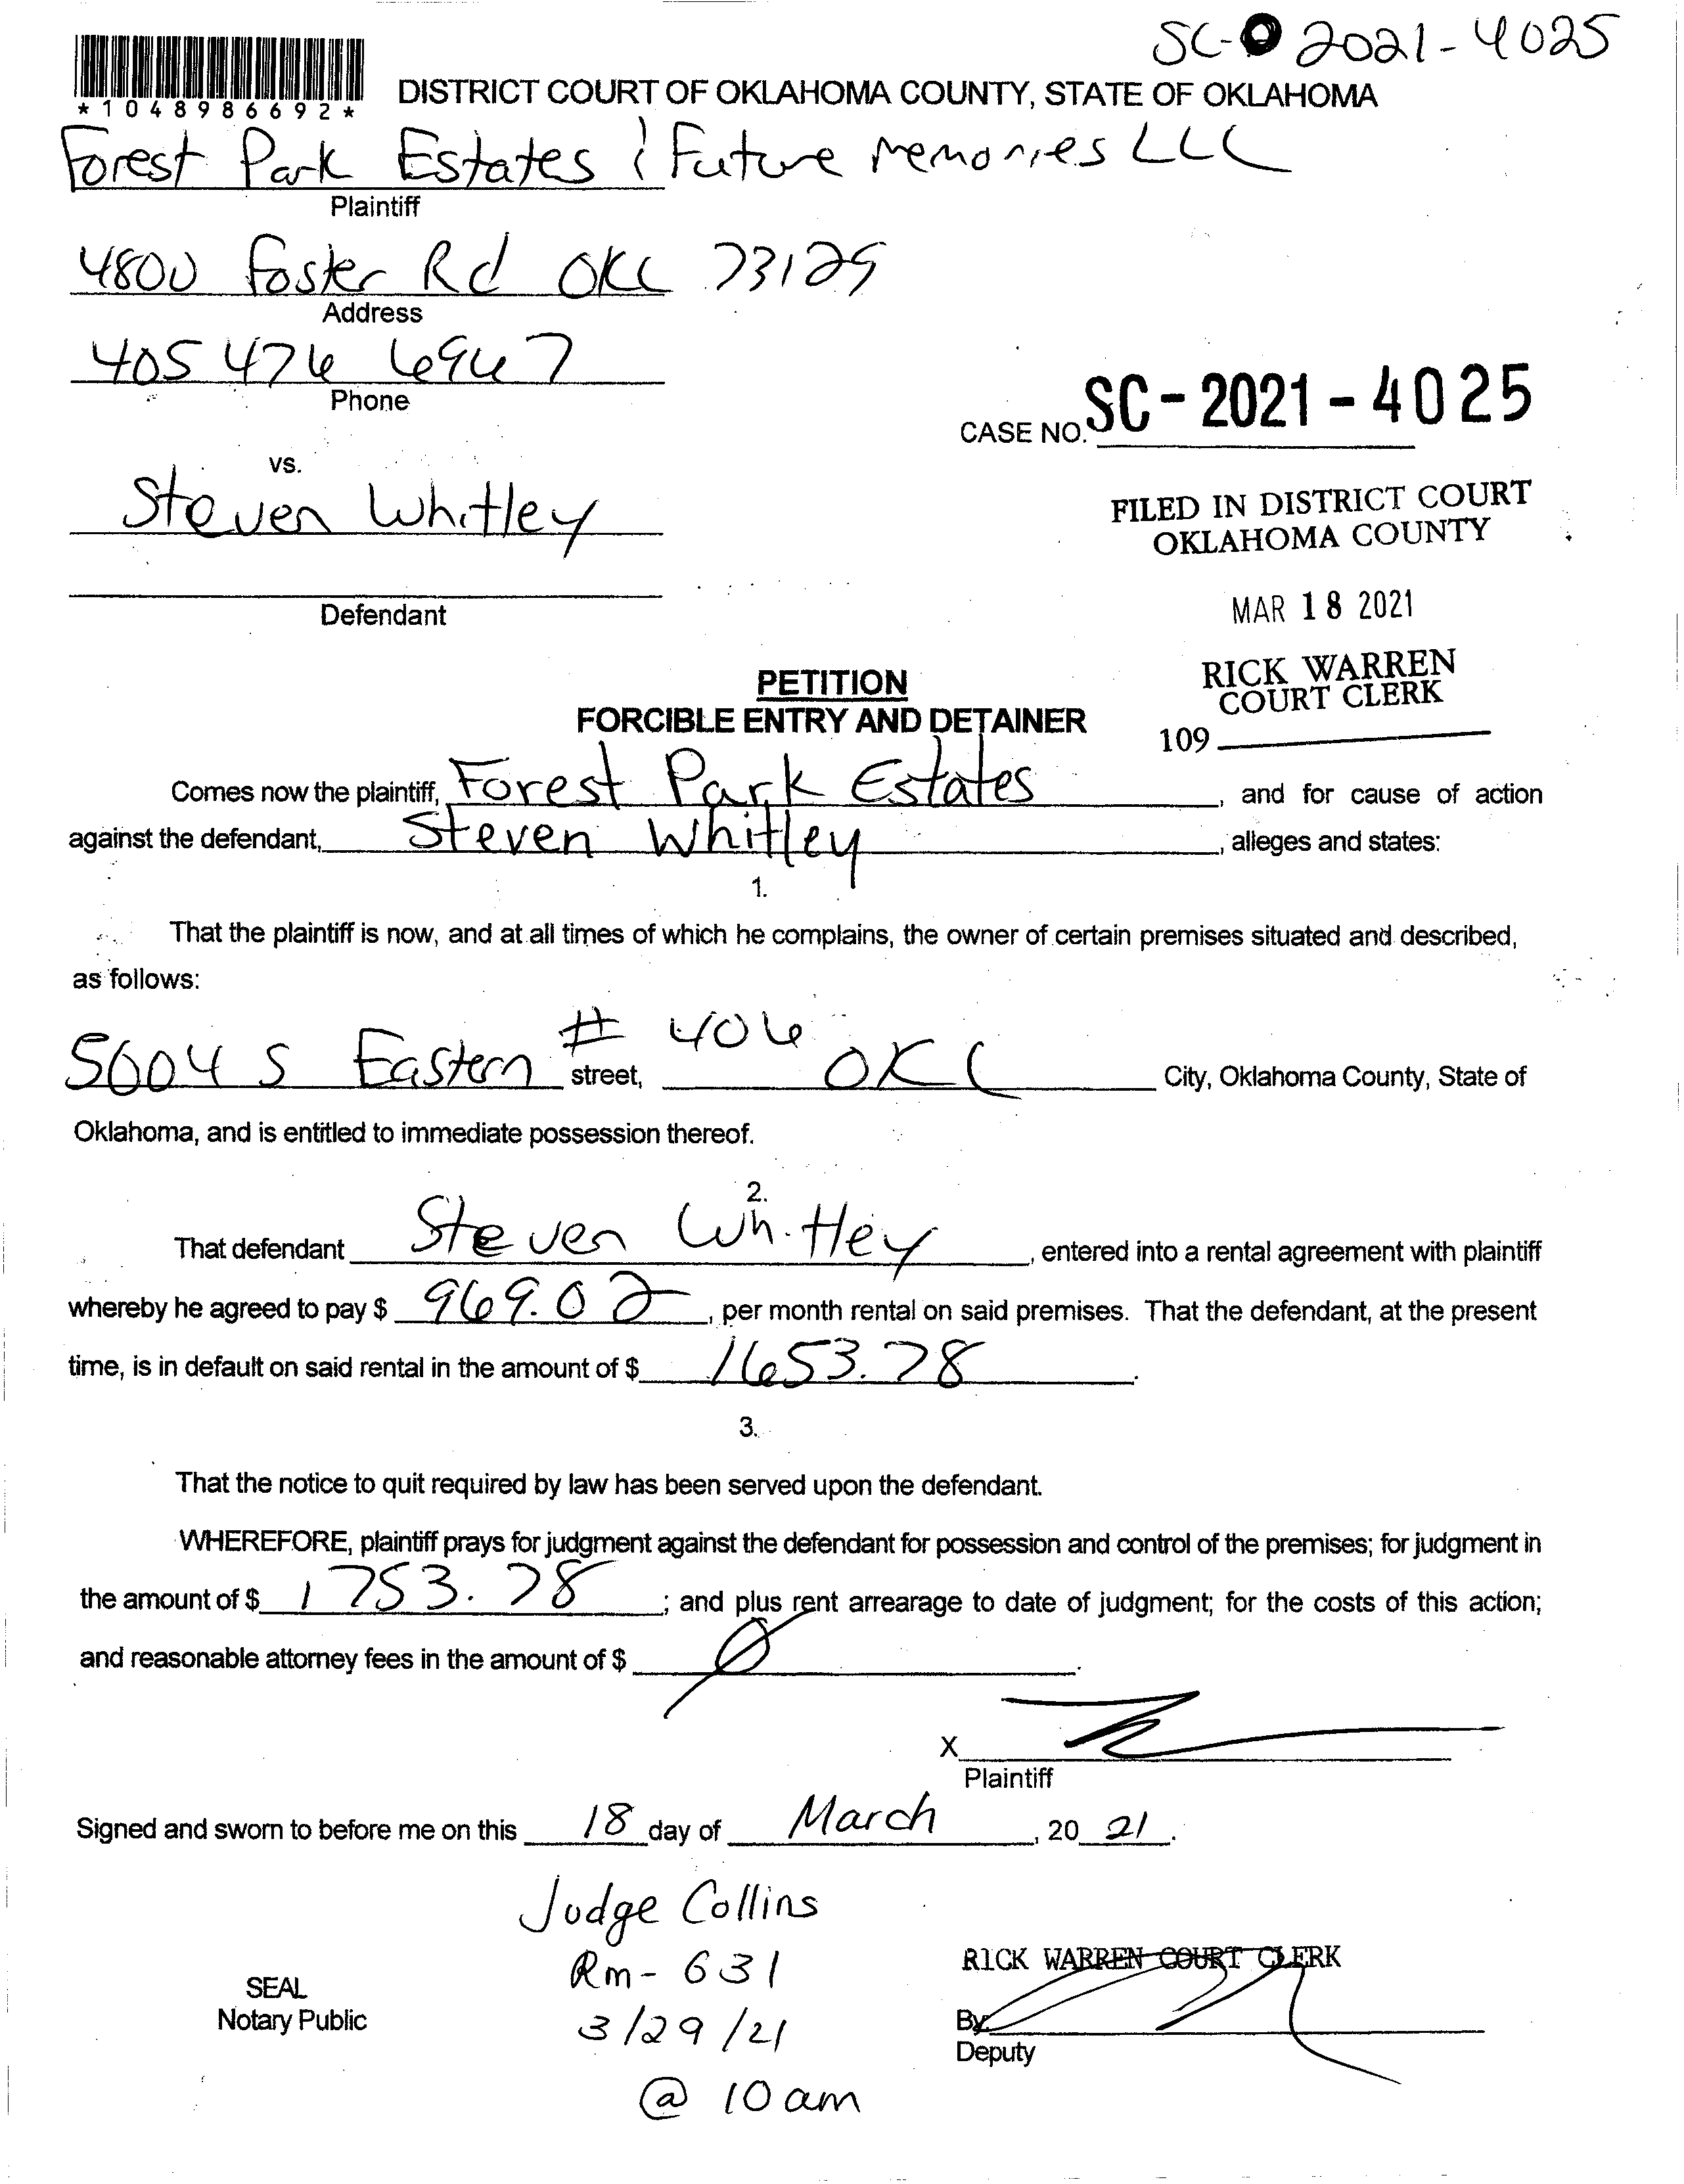 SC- 2021-4025
*1048986692*
DISTRICT COURT OF OKLAHOMA COUNTY, STATE OF OKLAHOMA
Forest Park Estates & Future Memories LLC
Plaintiff
4800 Foster Rd OKC 73129
Address
405 476 6967
Phone
CASE NO. SC-2021-4025
vs.
Steven Whitley
Defendant
FILED IN DISTRICT COURT
OKLAHOMA COUNTY
MAR 18 2021
RICK WARREN
COURT CLERK
109
PETITION
FORCIBLE ENTRY AND DETAINER
Comes now the plaintiff, Forest Park Estates, and for cause of action
against the defendant, Steven Whitley, alleges and states:
1.
That the plaintiff is now, and at all times of which he complains, the owner of certain premises situated and described,
as follows:
5604 S Eastern # 406 street, OKC City, Oklahoma County, State of
Oklahoma, and is entitled to immediate possession thereof.
2.
That defendant Steven Whitley, entered into a rental agreement with plaintiff
whereby he agreed to pay $ 969.02, per month rental on said premises. That the defendant, at the present
time, is in default on said rental in the amount of $ 1653.78.
3.
That the notice to quit required by law has been served upon the defendant.
WHEREFORE, plaintiff prays for judgment against the defendant for possession and control of the premises; for judgment in
the amount of $ 1753.78; and plus rent arrearage to date of judgment; for the costs of this action;
and reasonable attorney fees in the amount of $ Ø.
X
Plaintiff
Signed and sworn to before me on this 18 day of March, 20 21.
Judge Collins
Rm- 631
3/29/21
@ 10 am
SEAL
Notary Public
RICK WARREN COURT CLERK
By
Deputy